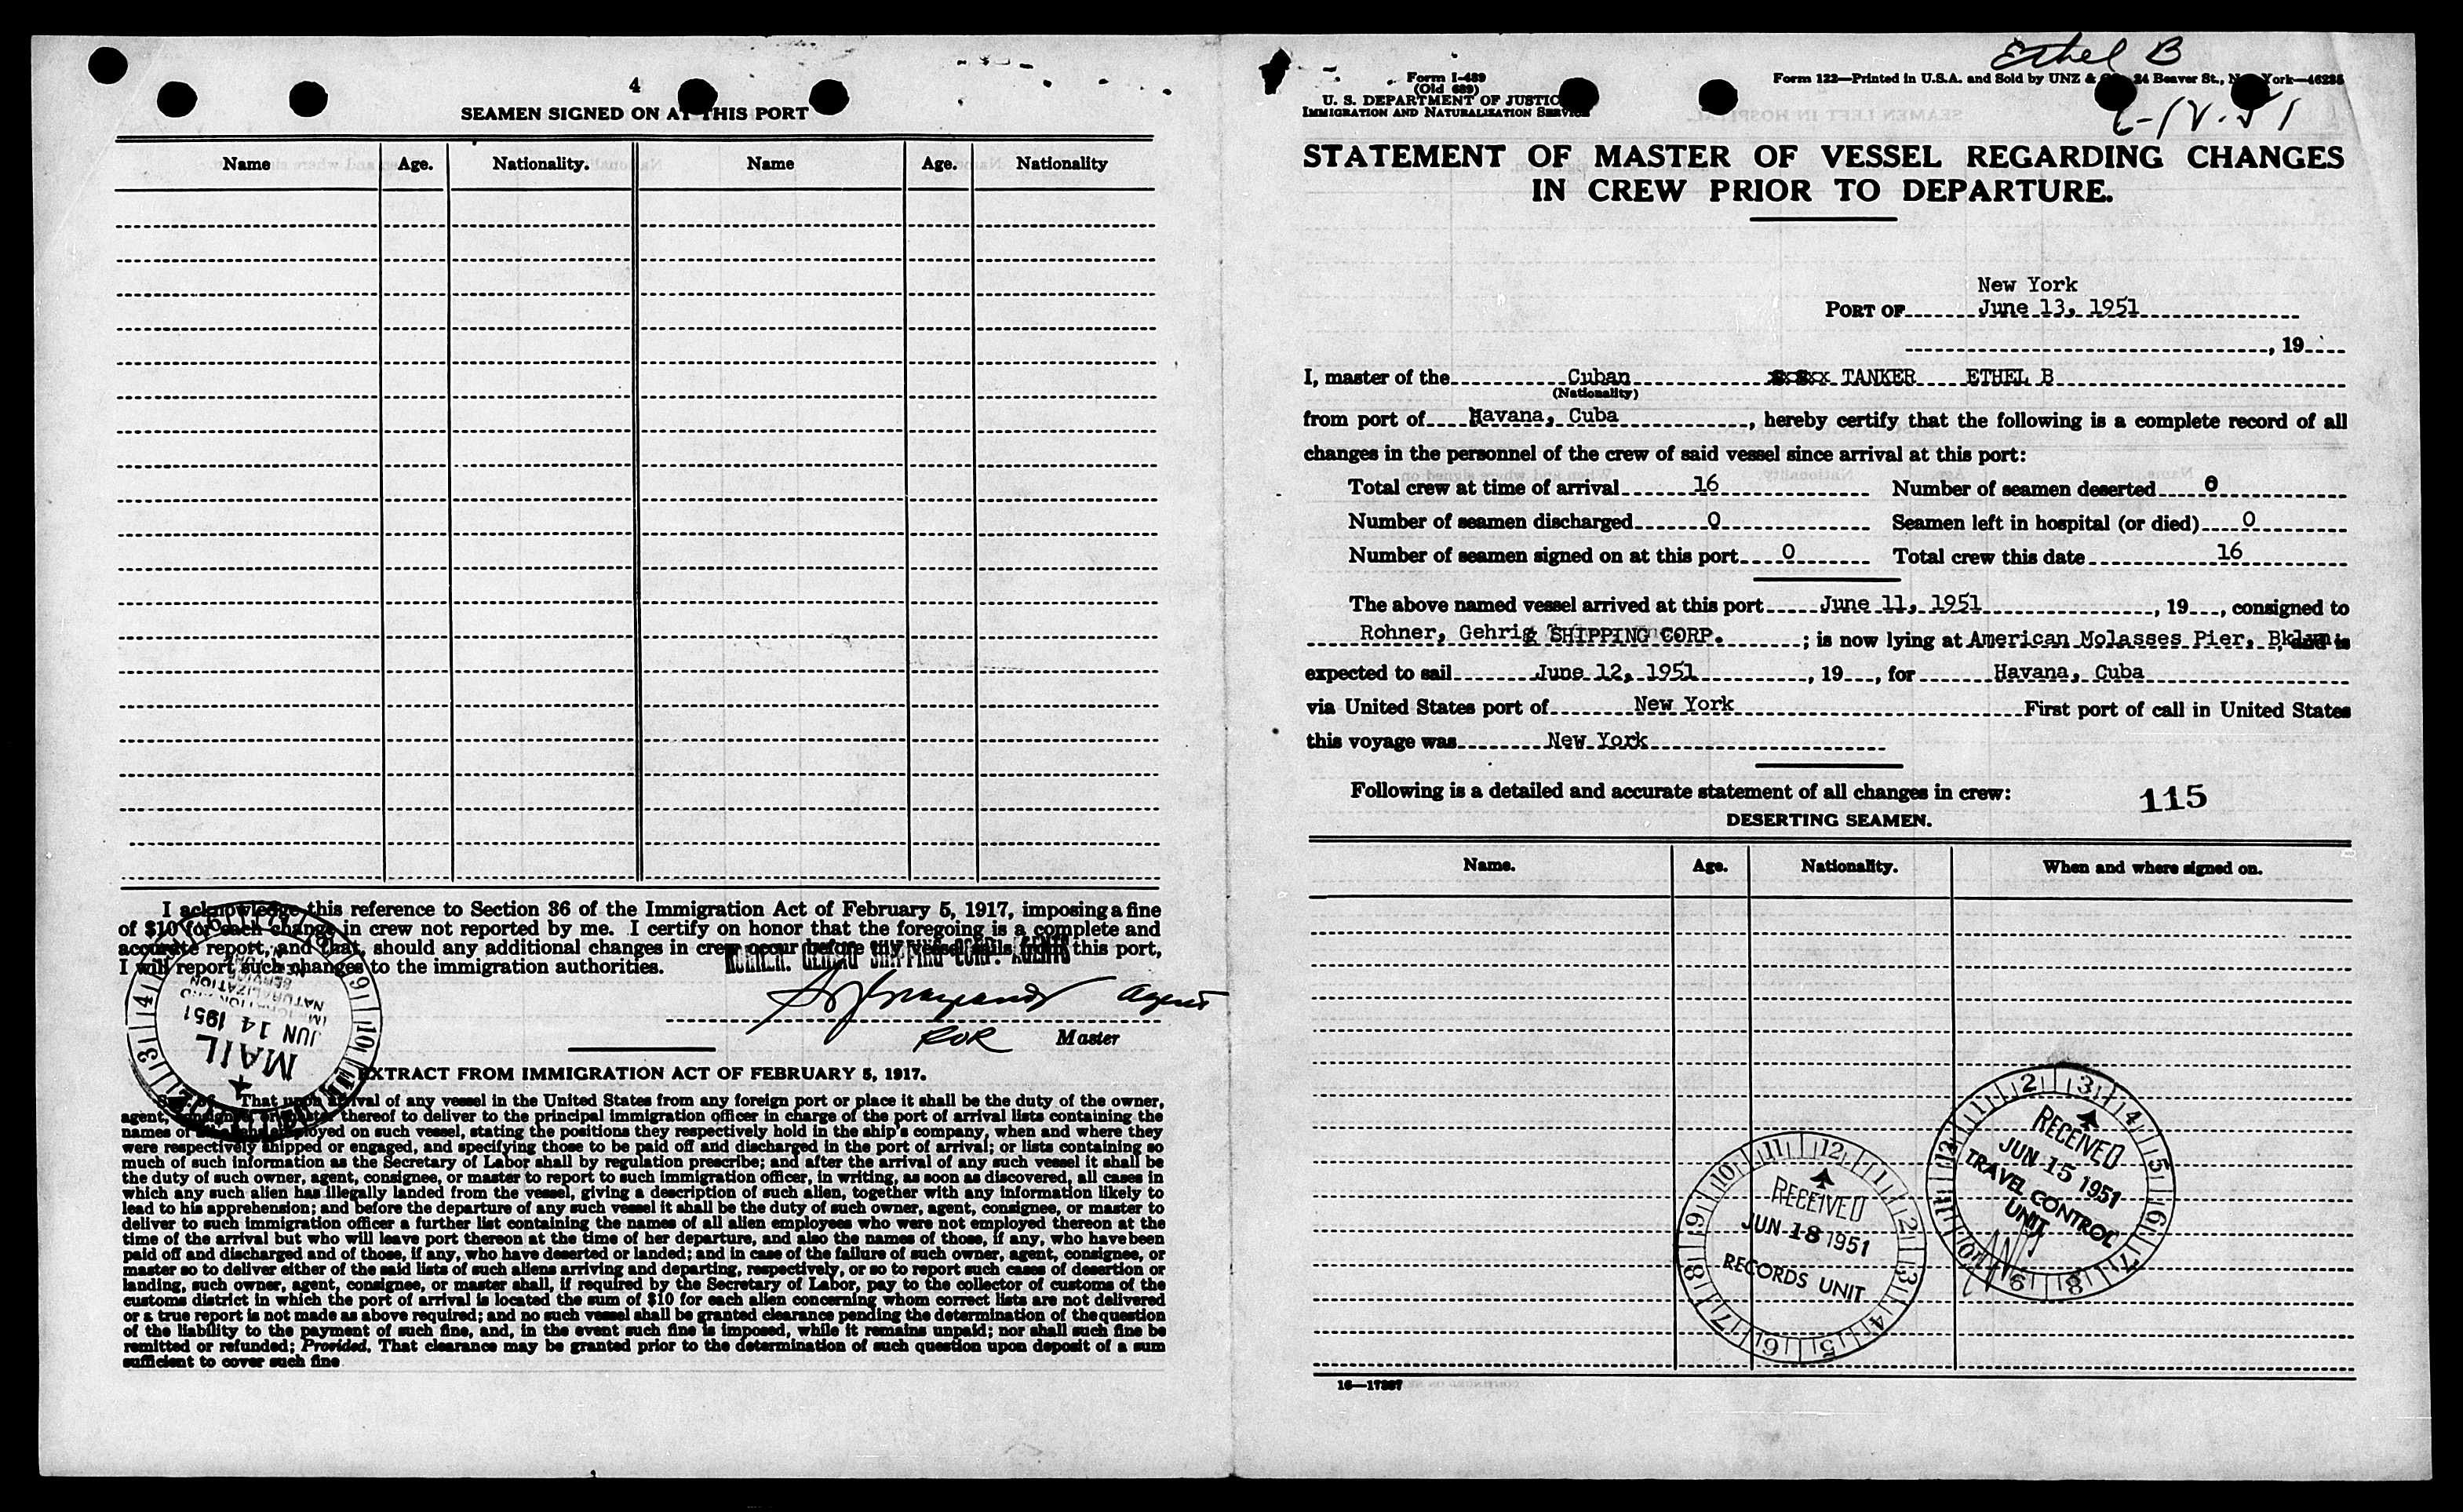 4
SEAMEN SIGNED ON AT THIS PORT
Name Age. Nationality. Name Age. Nationality
I acknowledge this reference to Section 36 of the Immigration Act of February 5, 1917, imposing a fine
of $10 for each change in crew not reported by me. I certify on honor that the foregoing is a complete and
accurate report, and that, should any additional changes in crew occur before my vessel sails from this port,
I will report such changes to the immigration authorities.
ROHNER, GEHRIG SHIPPING CORP. AGENTS
Agent
Master
MAIL
JUN 14 1951
EXTRACT FROM IMMIGRATION ACT OF FEBRUARY 5, 1917.
Sec. 36. That upon arrival of any vessel in the United States from any foreign port or place it shall be the duty of the owner,
agent, consignee, or master thereof to deliver to the principal immigration officer in charge of the port of arrival lists containing the
names of all aliens employed on such vessel, stating the positions they respectively hold in the ship's company, when and where they
were respectively shipped or engaged, and specifying those to be paid off and discharged in the port of arrival; or lists containing so
much of such information as the Secretary of Labor shall by regulation prescribe; and after the arrival of any such vessel it shall be
the duty of such owner, agent, consignee, or master to report to such immigration officer, in writing, as soon as discovered, all cases in
which any such alien has illegally landed from the vessel, giving a description of such alien, together with any information likely to
lead to his apprehension; and before the departure of any such vessel it shall be the duty of such owner, agent, consignee, or master to
deliver to such immigration officer a further list containing the names of all alien employees who were not employed thereon at the
time of the arrival but who will leave port thereon at the time of her departure, and also the names of those, if any, who have been
paid off and discharged and of those, if any, who have deserted or landed; and in case of the failure of such owner, agent, consignee, or
master so to deliver either of the said lists of such aliens arriving and departing, respectively, or so to report such cases of desertion or
landing, such owner, agent, consignee, or master shall, if required by the Secretary of Labor, pay to the collector of customs of the
customs district in which the port of arrival is located the sum of $10 for each alien concerning whom correct lists are not delivered
or a true report is not made as above required; and no such vessel shall be granted clearance pending the determination of the question
of the liability to the payment of such fine, and, in the event such fine is imposed, while it remains unpaid; nor shall such fine be
remitted or refunded; Provided, That clearance may be granted prior to the determination of such question upon deposit of a sum
sufficient to cover such fine
Ethel B
Form I-489
(Old 689)
U. S. DEPARTMENT OF JUSTICE
IMMIGRATION AND NATURALIZATION SERVICE
Form 122—Printed in U.S.A. and Sold by UNZ & CO., 24 Beaver St., New York—46235
STATEMENT OF MASTER OF VESSEL REGARDING CHANGES
IN CREW PRIOR TO DEPARTURE.
New York
PORT OF June 13, 1951
, 19
I, master of the Cuban TANKER ETHEL B
(Nationality)
from port of Havana, Cuba , hereby certify that the following is a complete record of all
changes in the personnel of the crew of said vessel since arrival at this port:
Total crew at time of arrival 16 Number of seamen deserted 0
Number of seamen discharged 0 Seamen left in hospital (or died) 0
Number of seamen signed on at this port 0 Total crew this date 16
The above named vessel arrived at this port June 11, 1951 , 19 , consigned to
Rohner, Gehrig SHIPPING CORP. ; is now lying at American Molasses Pier, Bklyn. and is
expected to sail June 12, 1951 , 19 , for Havana, Cuba
via United States port of New York First port of call in United States
this voyage was New York
Following is a detailed and accurate statement of all changes in crew:
115
DESERTING SEAMEN.
Name. Age. Nationality. When and where signed on.
RECEIVED
JUN 15 1951
TRAVEL CONTROL
UNIT
RECEIVED
JUN 18 1951
RECORDS UNIT